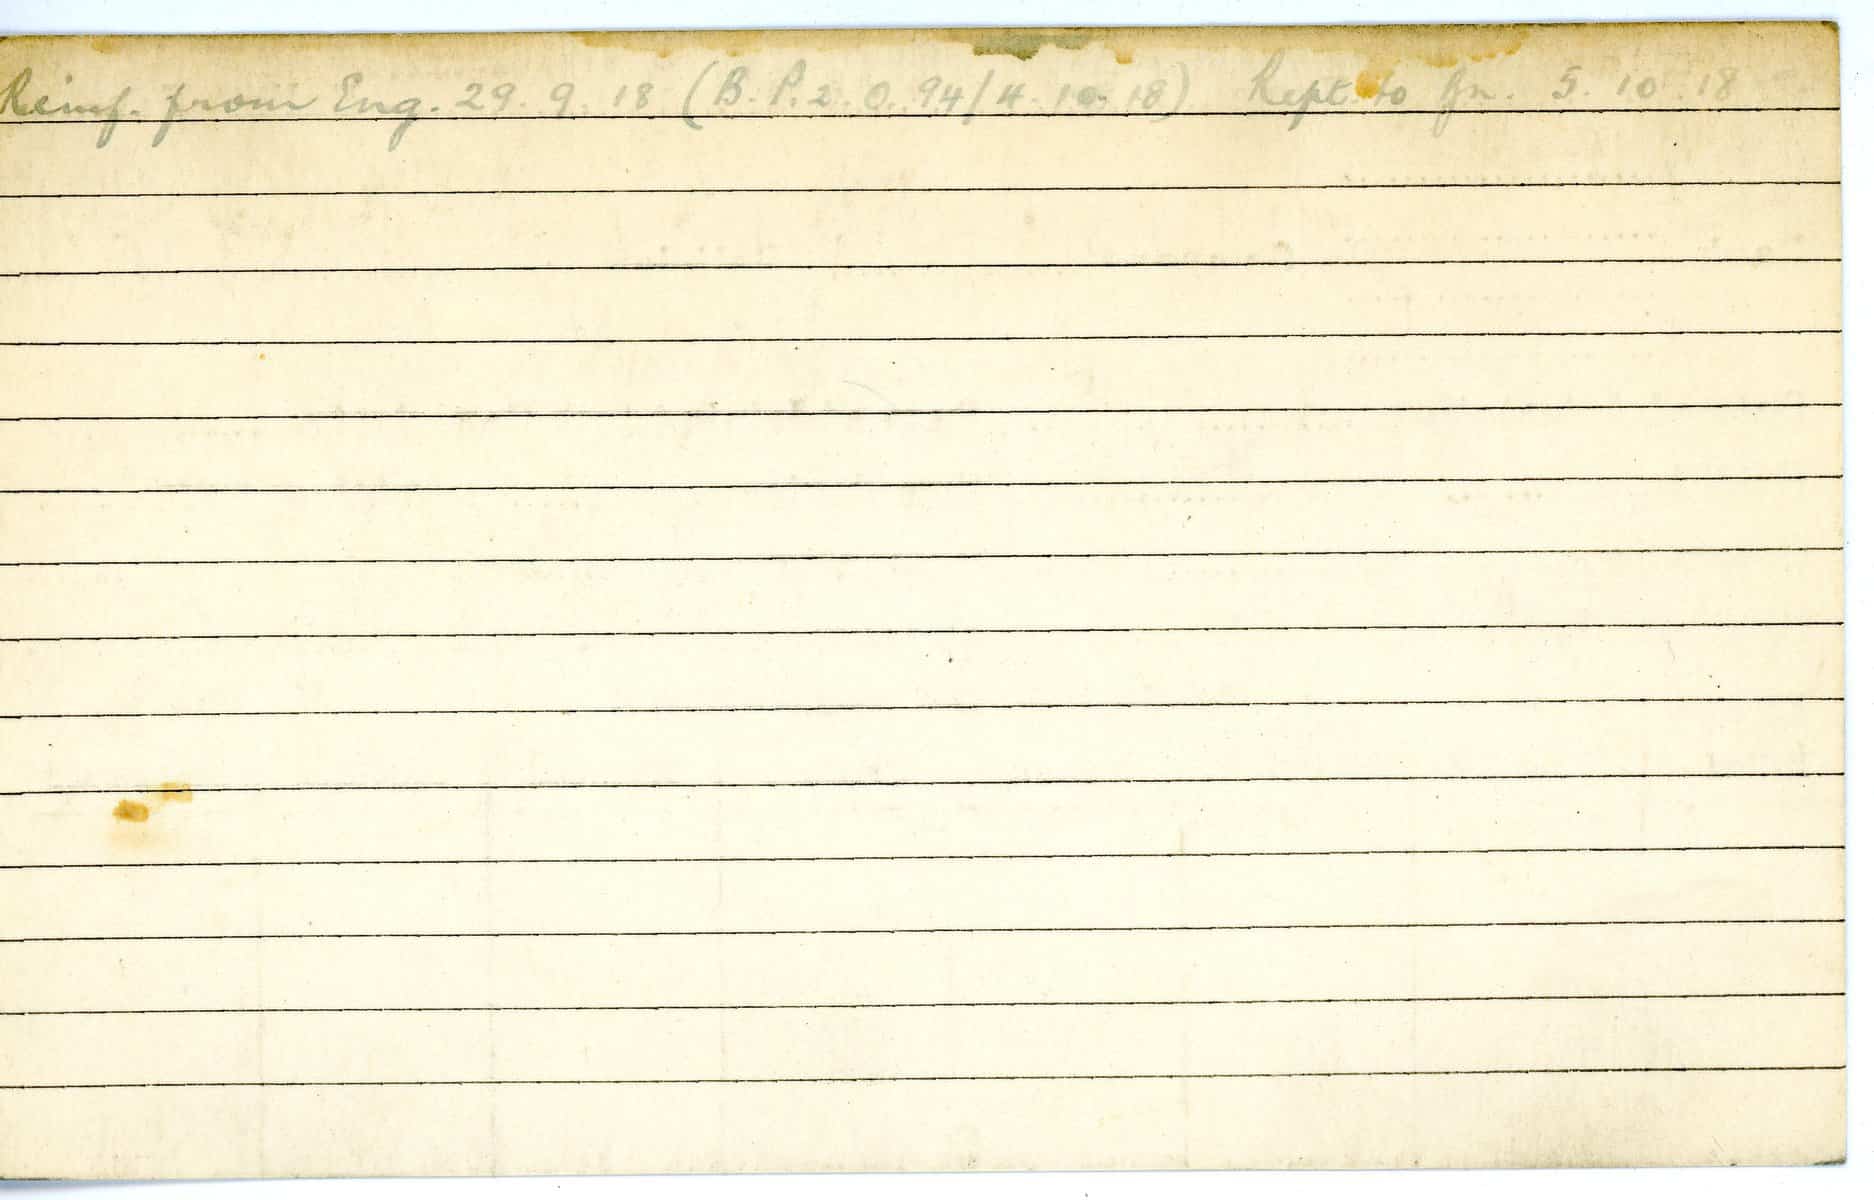 Reinf. from Eng. 29. 9. 18 (B. P. 2. O. 94/4. 10. 18) Rept. to Bn. 5. 10. 18